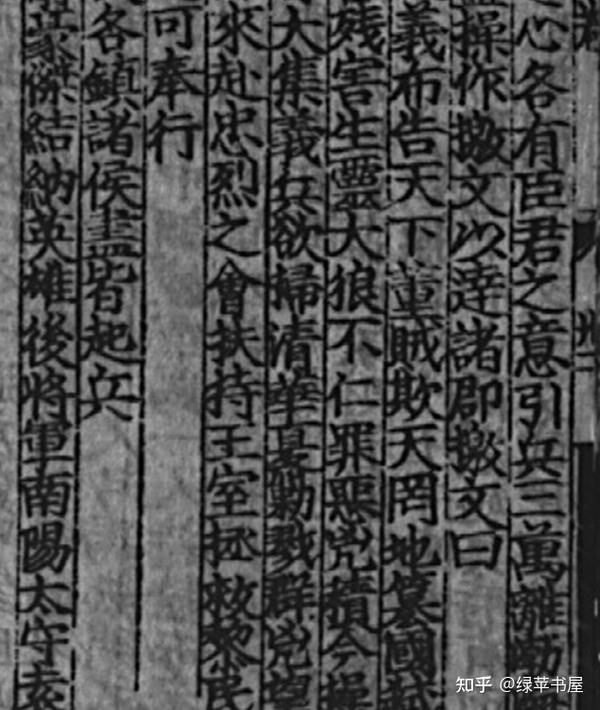 心各有臣君之意引兵三萬離勃
操作檄文以達諸郡檄文曰
義布告天下董賊欺天罔地篡國弑
殘害生靈大狼不仁罪惡兇積今操
大集義兵欲掃清華夏勦戮群兇
來赴忠烈之會扶持王室拯救黎民
可奉行
各鎮諸侯盡皆起兵
豪傑結納英雄後將軍南陽太守袁
知乎 @绿苹书屋